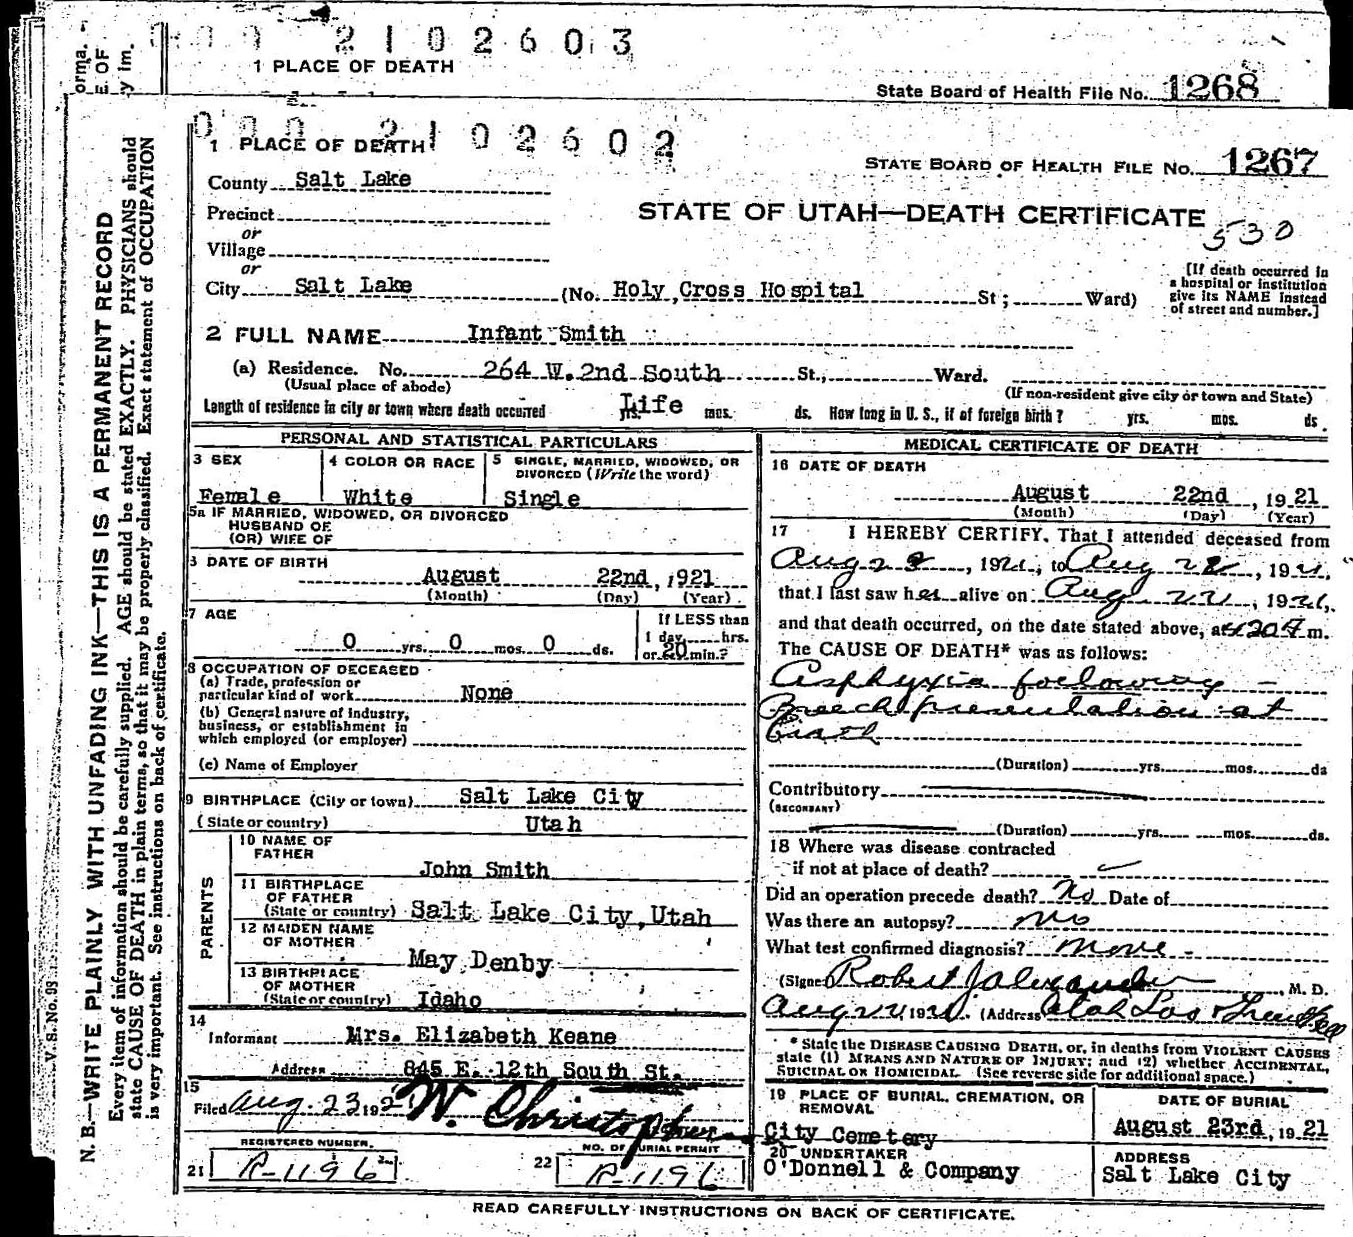 000 2102603
1 PLACE OF DEATH
State Board of Health File No. 1268
orma.
E OF
y im.
000 2102602
1 PLACE OF DEATH
STATE BOARD OF HEALTH FILE No. 1267
County Salt Lake
STATE OF UTAH—DEATH CERTIFICATE
530
Precinct
or
Village
or
City Salt Lake (No. Holy Cross Hospital St; Ward)
[If death occurred in a hospital or institution give its NAME instead of street and number.]
2 FULL NAME Infant Smith
(a) Residence. No. 264 W. 2nd South St., Ward.
(Usual place of abode) (If non-resident give city or town and State)
Length of residence in city or town where death occurred Life yrs. mos. ds. How long in U. S., if of foreign birth? yrs. mos. ds.
PERSONAL AND STATISTICAL PARTICULARS
3 SEX
Female
4 COLOR OR RACE
White
5 SINGLE, MARRIED, WIDOWED, OR DIVORCED (Write the word)
Single
5a IF MARRIED, WIDOWED, OR DIVORCED
HUSBAND OF
(OR) WIFE OF
6 DATE OF BIRTH
August 22nd, 1921
(Month) (Day) (Year)
7 AGE
0 yrs. 0 mos. 0 ds.
If LESS than
1 day, hrs.
or 20 min.?
8 OCCUPATION OF DECEASED
(a) Trade, profession or
particular kind of work None
(b) General nature of industry,
business, or establishment in
which employed (or employer)
(c) Name of Employer
9 BIRTHPLACE (City or town) Salt Lake City
(State or country) Utah
PARENTS
10 NAME OF
FATHER
John Smith
11 BIRTHPLACE
OF FATHER
(State or country) Salt Lake City, Utah
12 MAIDEN NAME
OF MOTHER
May Denby
13 BIRTHPLACE
OF MOTHER
(State or country) Idaho
14
Informant Mrs. Elizabeth Keane
Address 845 E. 12th South St.
15
Filed Aug. 23, 192 W. Christopherson
REGISTERED NUMBER.
21 R-1196
NO. OF BURIAL PERMIT
22 R-1196
MEDICAL CERTIFICATE OF DEATH
16 DATE OF DEATH
August 22nd, 1921
(Month) (Day) (Year)
17 I HEREBY CERTIFY, That I attended deceased from
Aug 22, 1921, to Aug 22, 1921,
that I last saw her alive on Aug 22, 1921,
and that death occurred, on the date stated above, at 420 P m.
The CAUSE OF DEATH* was as follows:
Asphyxia following —
Breech presentation at
birth
(Duration) yrs. mos. ds
Contributory
(SECONDARY)
(Duration) yrs. mos. ds.
18 Where was disease contracted
if not at place of death?
Did an operation precede death? No Date of
Was there an autopsy? no
What test confirmed diagnosis? none -
(Signed Robert J Alexander, M. D.
Aug 22 1921. (Address Utah
* State the DISEASE CAUSING DEATH, or, in deaths from VIOLENT CAUSES
state (1) MEANS AND NATURE OF INJURY; and (2) whether ACCIDENTAL,
SUICIDAL OR HOMICIDAL. (See reverse side for additional space.)
19 PLACE OF BURIAL, CREMATION, OR
REMOVAL
City Cemetery
DATE OF BURIAL
August 23rd, 1921
20 UNDERTAKER
O'Donnell & Company
ADDRESS
Salt Lake City
READ CAREFULLY INSTRUCTIONS ON BACK OF CERTIFICATE.
V. S. No. 98
N. B.—WRITE PLAINLY WITH UNFADING INK—THIS IS A PERMANENT RECORD
Every item of information should be carefully supplied. AGE should be stated EXACTLY. PHYSICIANS should
state CAUSE OF DEATH in plain terms, so that it may be properly classified. Exact statement of OCCUPATION
is very important. See instructions on back of certificate.